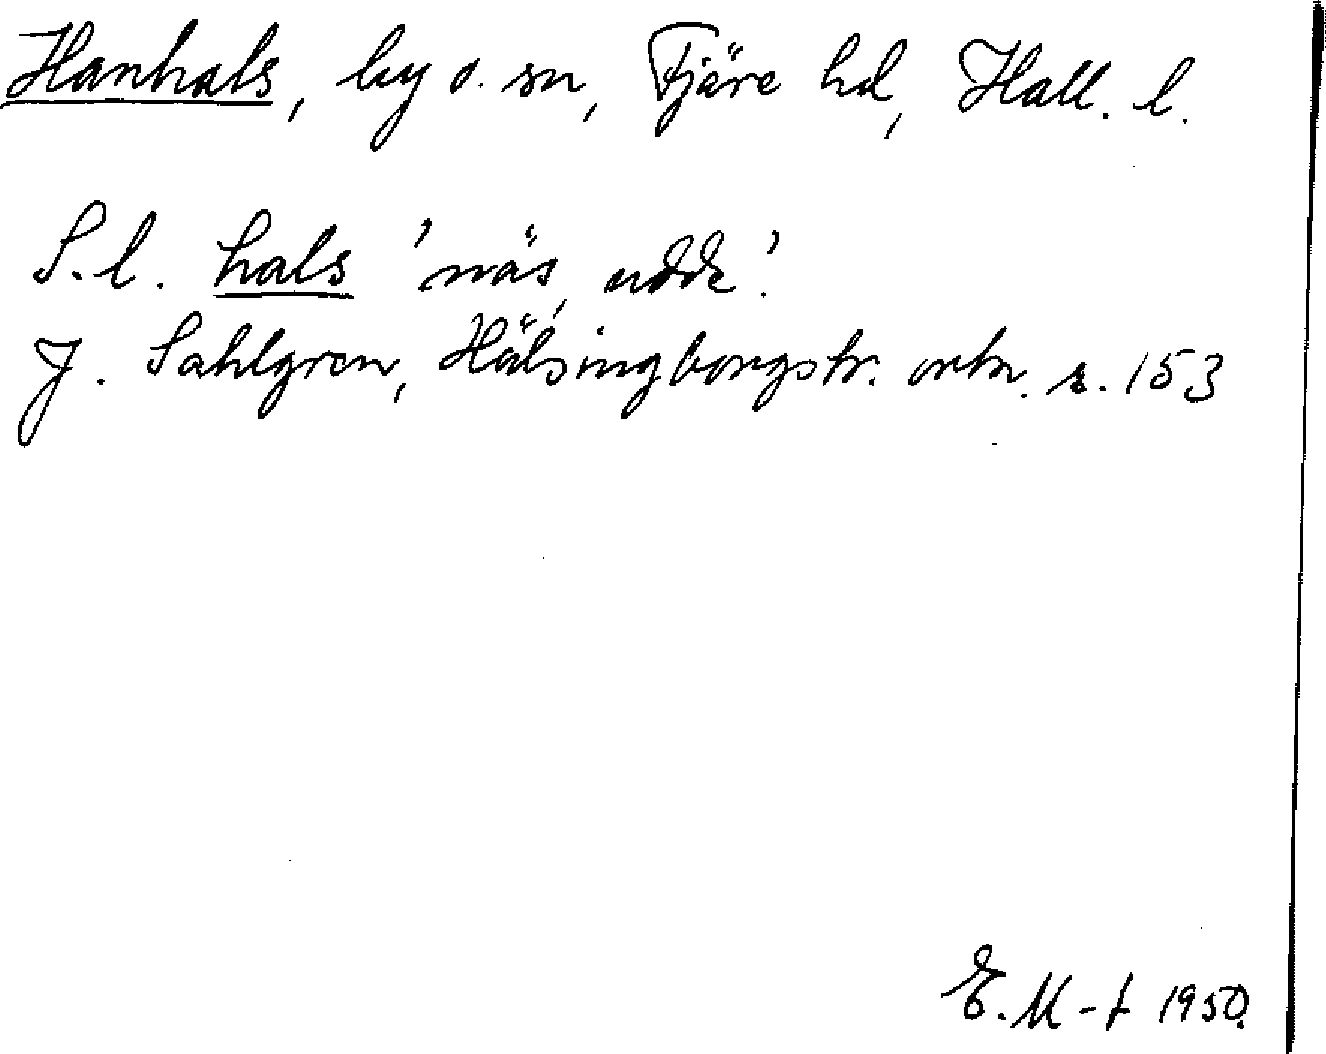 Hanhals, by o. sn, Fjäre hd, Hall. l.
S. l. hals 'näs, udde'.
J. Sahlgren, Hälsingborgstr. ortn. s. 153
E. M-t 1950.